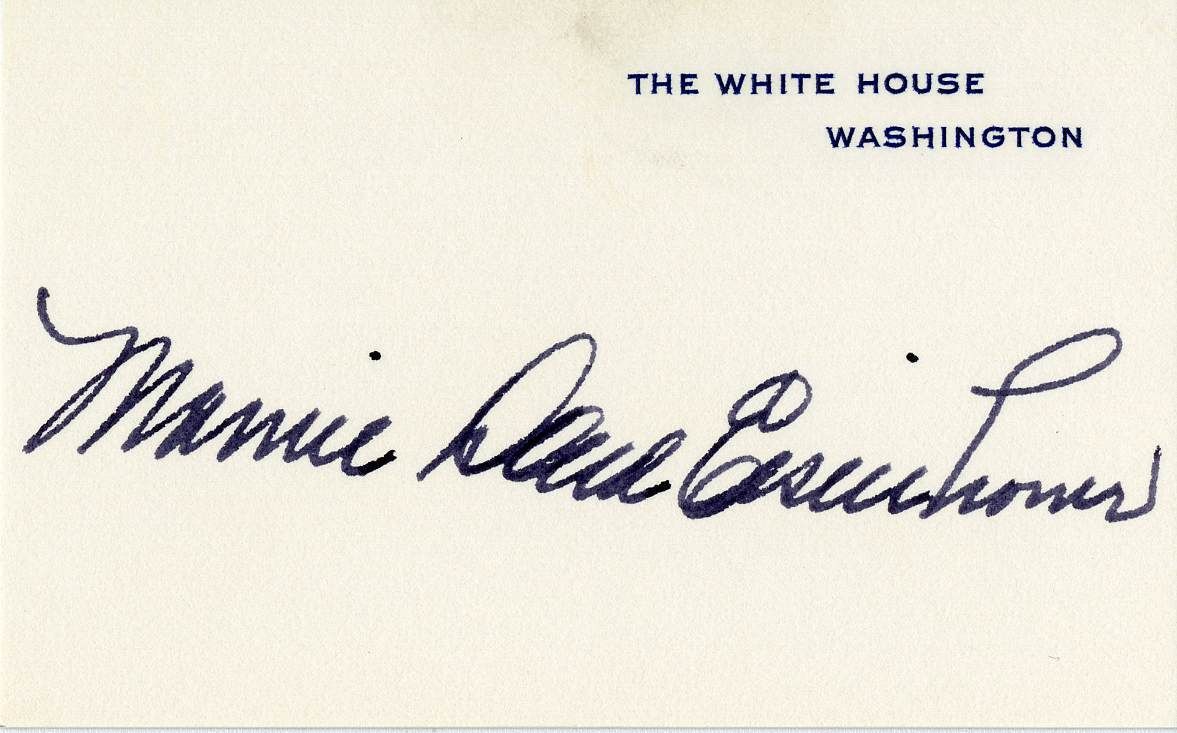 THE WHITE HOUSE
WASHINGTON
Mamie Doud Eisenhower